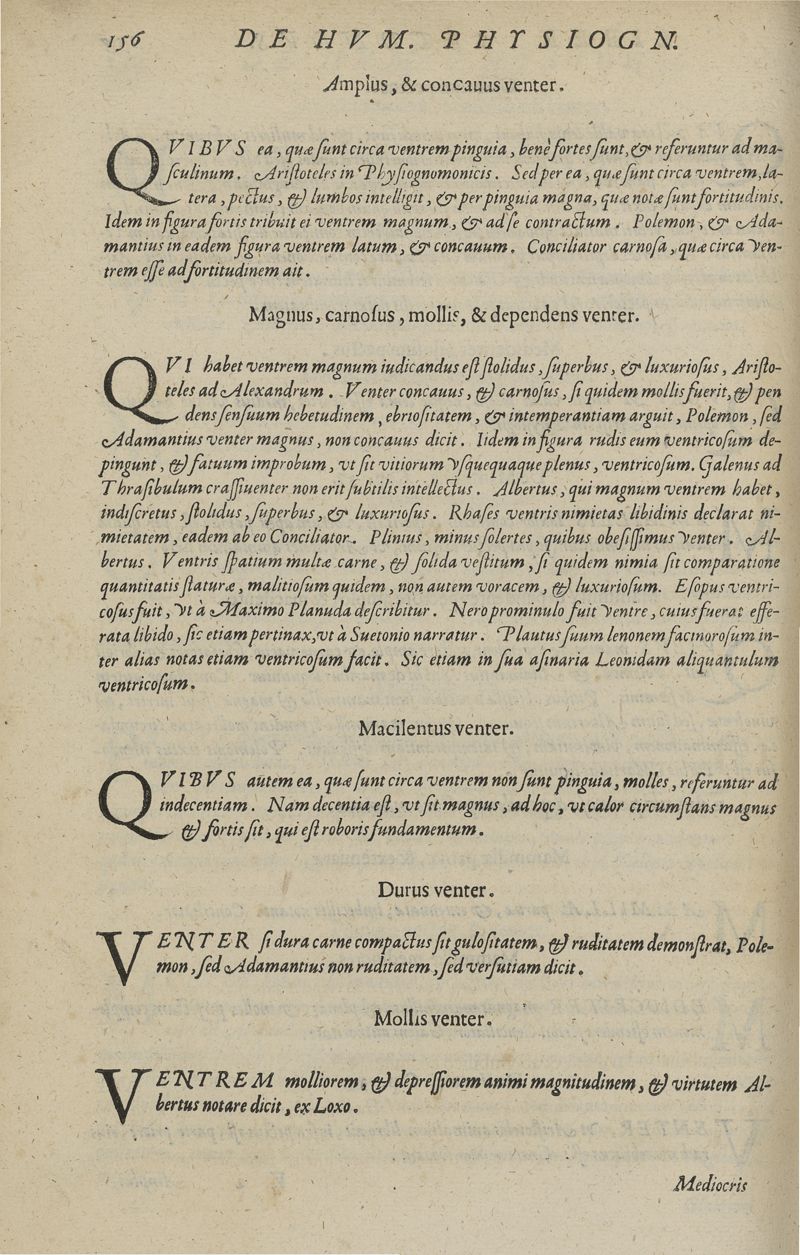 156 DE HVM. PHYSIOGN.
Amplus, & concauus venter.
QVIBVS ea, quæ ſunt circa ventrem pinguia, benè fortes ſunt, & referuntur ad ma-
ſculinum. Ariſtoteles in Phyſiognomonicis. Sed per ea, quæ ſunt circa ventrem, la-
tera, pectus, & lumbos intelligit, & per pinguia magna, quæ notæ ſunt fortitudinis.
Idem in figura fortis tribuit ei ventrem magnum, & ad ſe contractum. Polemon, & Ada-
mantius in eadem figura ventrem latum, & concauum. Conciliator carnoſa, quæ circa ven-
trem eſſe ad fortitudinem ait.
Magnus, carnoſus, mollis, & dependens venter.
QVI habet ventrem magnum iudicandus eſt ſtolidus, ſuperbus, & luxurioſus, Ariſto-
teles ad Alexandrum. Venter concauus, & carnoſus, ſi quidem mollis fuerit, & pen
dens ſenſuum hebetudinem, ebrioſitatem, & intemperantiam arguit, Polemon, ſed
Adamantius venter magnus, non concauus dicit. Iidem in figura rudis eum ventricoſum de-
pingunt, & fatuum improbum, vt ſit vitiorum vſquequaque plenus, ventricoſum. Galenus ad
Thraſibulum craſſiuenter non erit ſubtilis intellectus. Albertus, qui magnum ventrem habet,
indiſcretus, ſtolidus, ſuperbus, & luxurioſus. Rhaſes ventris nimietas libidinis declarat ni-
mietatem, eadem ab eo Conciliator. Plinius, minus ſolertes, quibus obeſiſſimus venter. Al-
bertus. Ventris ſpatium multæ carne, & ſolida veſtitum, ſi quidem nimia ſit comparatione
quantitatis ſtaturæ, malitioſum quidem, non autem voracem, & luxurioſum. Eſopus ventri-
coſus fuit, vt à Maximo Planuda deſcribitur. Nero prominulo fuit ventre, cuius fuerat effe-
rata libido, ſic etiam pertinax, vt à Suetonio narratur. Plautus ſuum lenonem facinoroſum in-
ter alias notas etiam ventricoſum facit. Sic etiam in ſua aſinaria Leonidam aliquantulum
ventricoſum.
Macilentus venter.
QVIBVS autem ea, quæ ſunt circa ventrem non ſunt pinguia, molles, referuntur ad
indecentiam. Nam decentia eſt, vt ſit magnus, ad hoc, vt calor circumſtans magnus
& fortis ſit, qui eſt roboris fundamentum.
Durus venter.
VENTER ſi dura carne compactus ſit guloſitatem, & ruditatem demonſtrat, Pole-
mon, ſed Adamantius non ruditatem, ſed verſutiam dicit.
Mollis venter.
VENTREM molliorem, & depreſſiorem animi magnitudinem, & virtutem Al-
bertus notare dicit, ex Loxo.
Mediocris